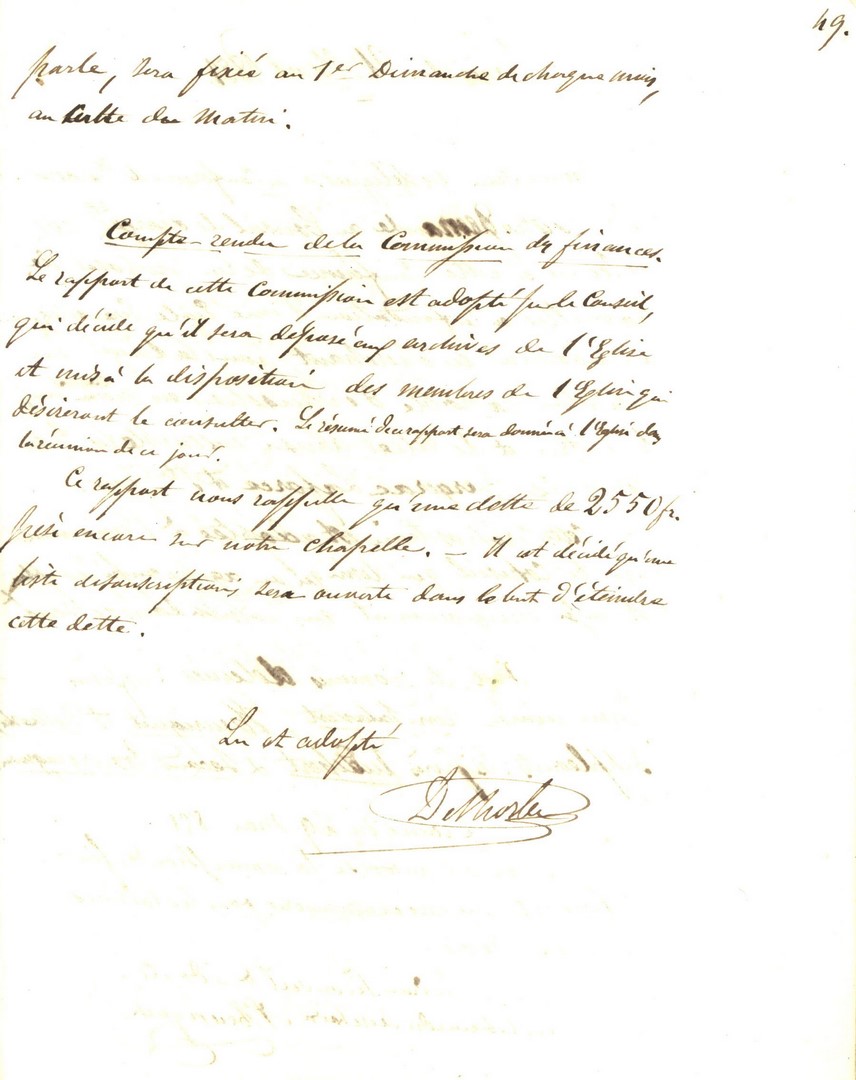 49.
parle, sera fixée au 1er Dimanche de chaque mois,
au culte du matin.
Compte-rendu de la Commission des finances.
Le rapport de cette Commission est adopté par le Conseil,
qui décide qu'il sera déposé aux archives de l'Eglise
et mis à la disposition des membres de l'Eglise qui
désireront le consulter. Le résumé de ce rapport sera donné à l'Eglise dans
la réunion de ce jour.
Ce rapport nous rappelle qu'une dette de 2550 fr.
pèse encore sur notre chapelle. — Il est décidé qu'une
liste de souscriptions sera ouverte dans le but d'éteindre
cette dette.
Lu et adopté